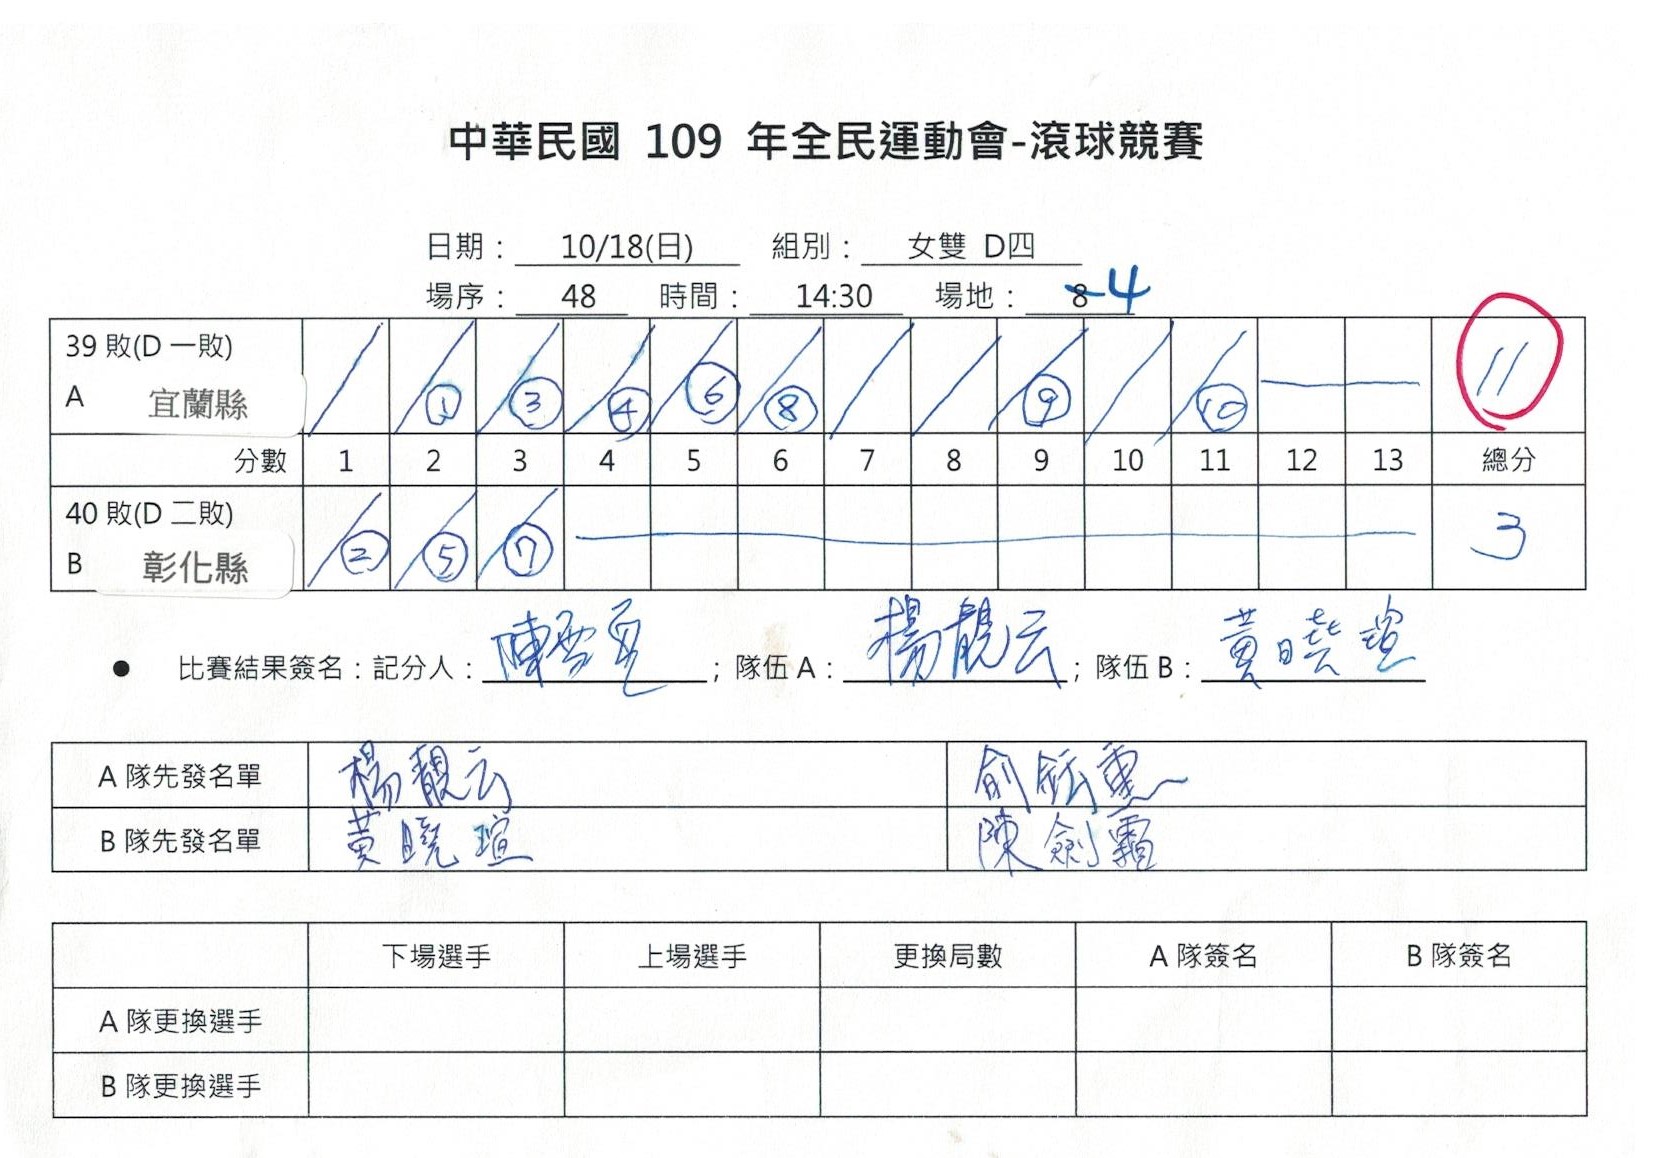 中華民國 109 年全民運動會-滾球競賽
日期： 10/18(日) 組別： 女雙 D四
場序： 48 時間： 14:30 場地： 8 4
39 敗(D 一敗)
A 宜蘭縣 ① ③ ④ ⑥ ⑧ ⑨ ⑩ 11
分數 1 2 3 4 5 6 7 8 9 10 11 12 13 總分
40 敗(D 二敗)
B 彰化縣 ② ⑤ ⑦ 3
● 比賽結果簽名：記分人： ；隊伍 A： 楊靚云 ；隊伍 B： 黃曉瑄
A 隊先發名單 楊靚云
B 隊先發名單 黃曉瑄 陳劍霜
下場選手 上場選手 更換局數 A 隊簽名 B 隊簽名
A 隊更換選手
B 隊更換選手